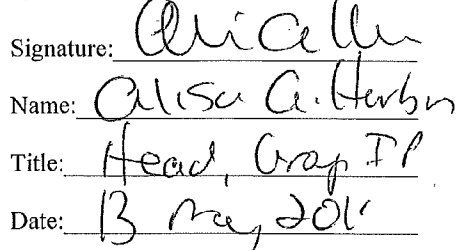 Signature:
Name: Alisa A. Harbin
Title: Head, Group IP
Date: 13 May